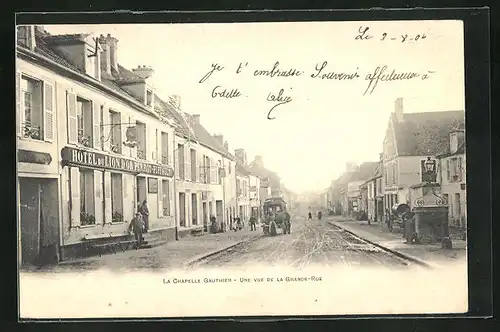 Le 2-8-04
Je t'embrasse Souvenir affectueux à
Odette. Alice
HOTEL DU LION D'OR
LA CHAPELLE GAUTHIER - UNE VUE DE LA GRANDE-RUE